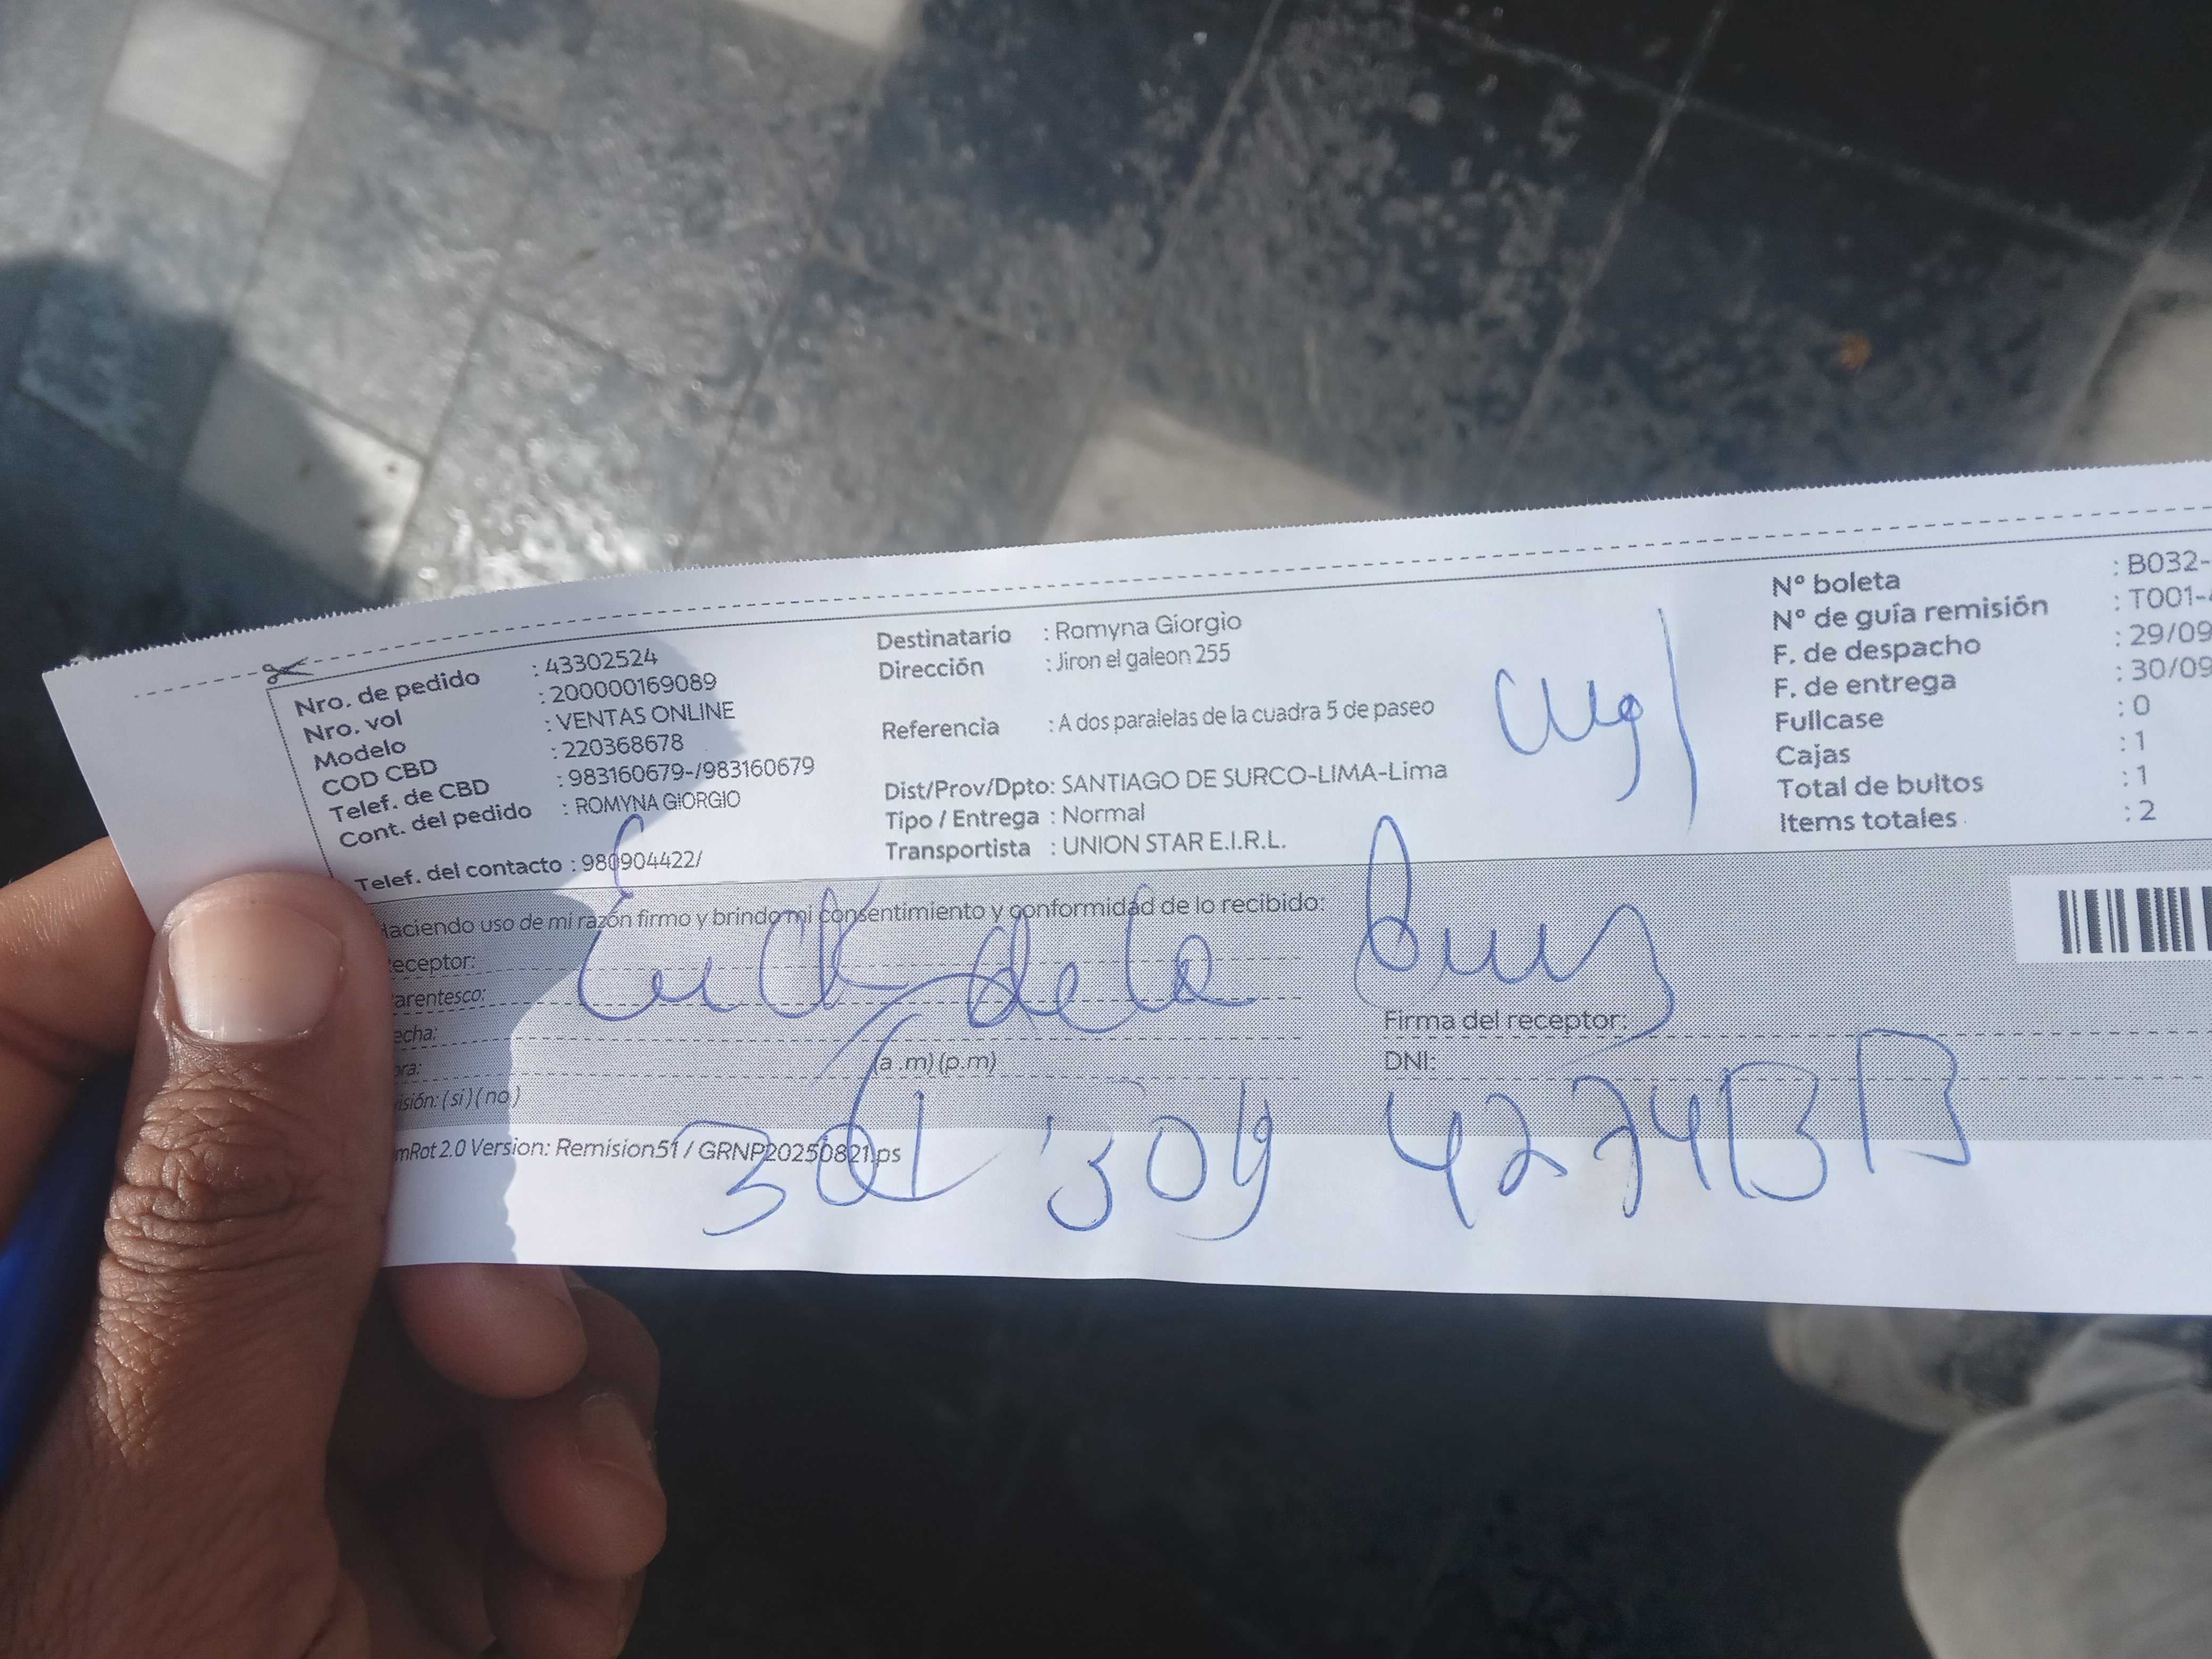 Nro. de pedido : 43302524
Nro. vol : 200000169089
Modelo : VENTAS ONLINE
COD CBD : 220368678
Telef. de CBD : 983160679-/983160679
Cont. del pedido : ROMYNA GIORGIO
Telef. del contacto : 980904422/
Destinatario : Romyna Giorgio
Dirección : Jiron el galeon 255
Referencia : A dos paralelas de la cuadra 5 de paseo
Dist/Prov/Dpto: SANTIAGO DE SURCO-LIMA-Lima
Tipo / Entrega : Normal
Transportista : UNION STAR E.I.R.L.
Nº boleta : B032-
Nº de guía remisión : T001-
F. de despacho : 29/09
F. de entrega : 30/09
Fullcase : 0
Cajas : 1
Total de bultos : 1
Items totales : 2
Haciendo uso de mi razón firmo y brindo mi consentimiento y conformidad de lo recibido:
eceptor:
arentesco:
echa:
ora: (a .m) (p.m)
isión: ( si ) ( no )
Erick de la Cruz
Firma del receptor:
DNI:
mRot 2.0 Version: Remision51 / GRNP20250821.ps